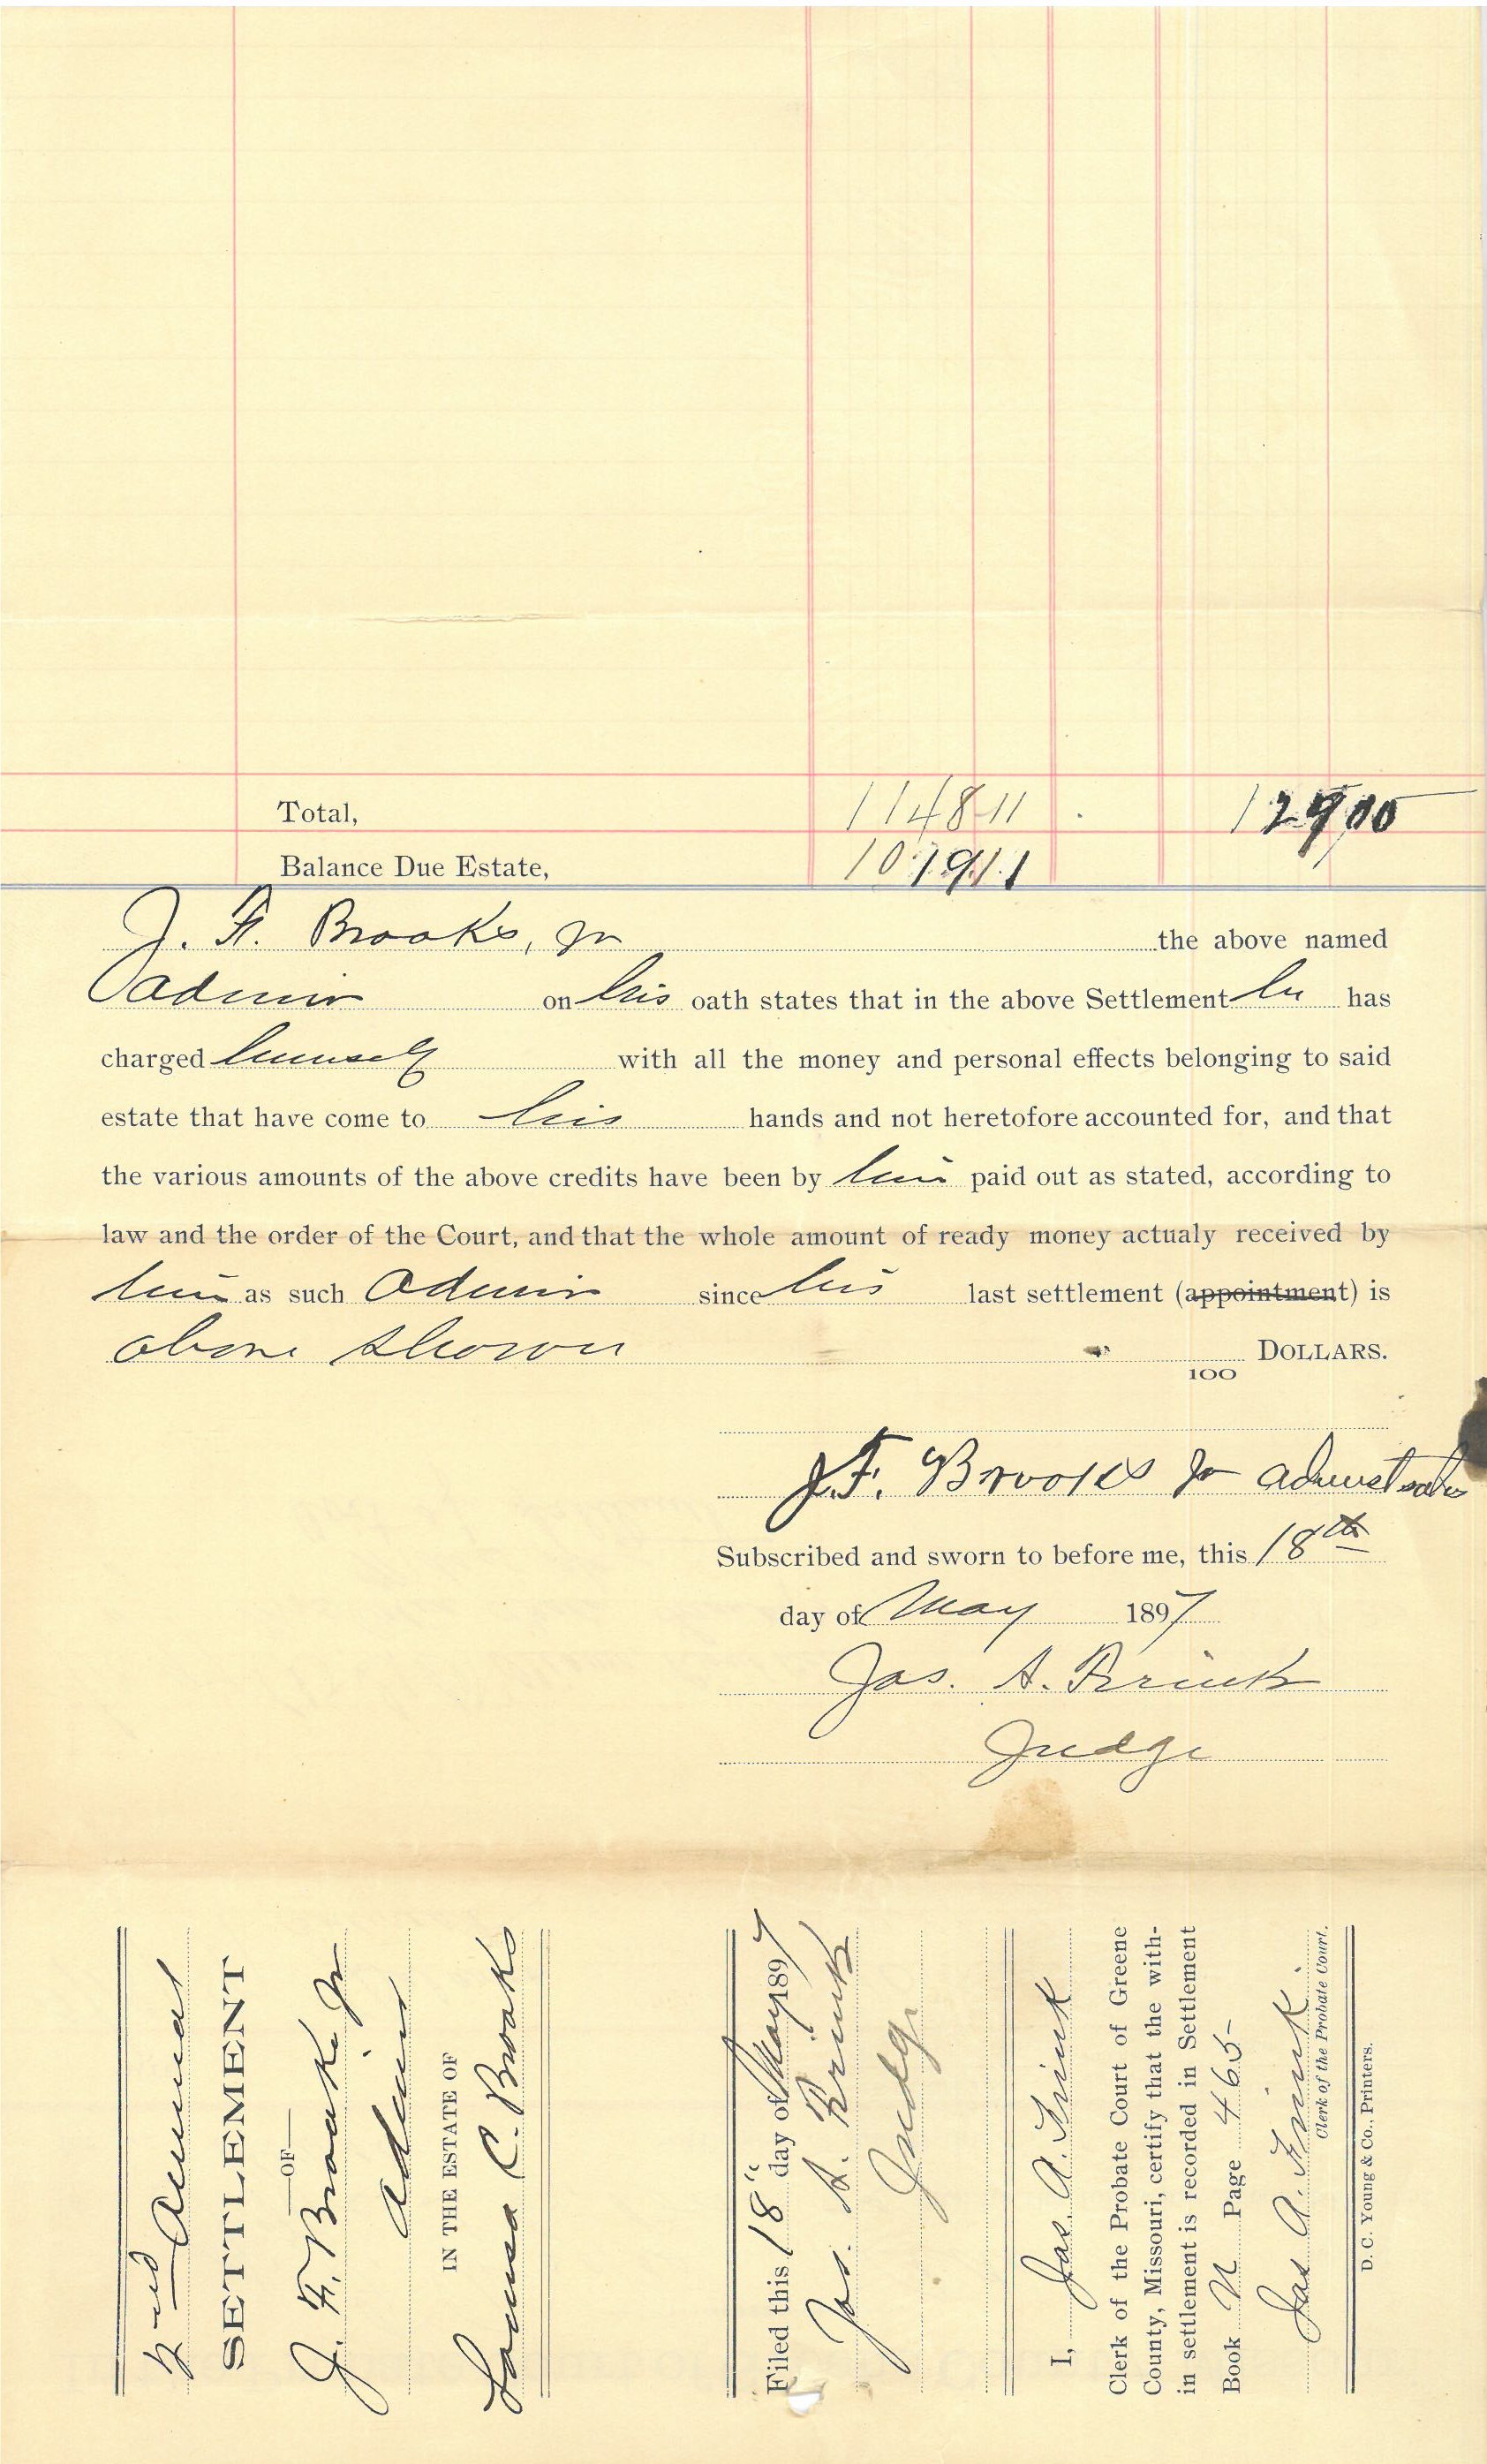 Total, 1148 11 129 00
Balance Due Estate, 1019 11
J. F. Brooks, Jr the above named
Admin on his oath states that in the above Settlement he has
charged himself with all the money and personal effects belonging to said
estate that have come to his hands and not heretofore accounted for, and that
the various amounts of the above credits have been by him paid out as stated, according to
law and the order of the Court, and that the whole amount of ready money actualy received by
him as such Admin since his last settlement (appointment) is
above shown DOLLARS.
100
J.F. Brooks Jr
Subscribed and sworn to before me, this 18th
day of May 1897
Jas. A. Frink
Judge
2nd Annual
SETTLEMENT
OF
J. F. Brooks Jr
Admin
IN THE ESTATE OF
C. Brooks
Filed this 18" day of May 1897
Jas. A. Frink
Judge
I, Jas. A. Frink
Clerk of the Probate Court of Greene
County, Missouri, certify that the with-
in settlement is recorded in Settlement
Book N Page 465
Jas A. Frink.
Clerk of the Probate Court.
D. C. Young & Co., Printers.